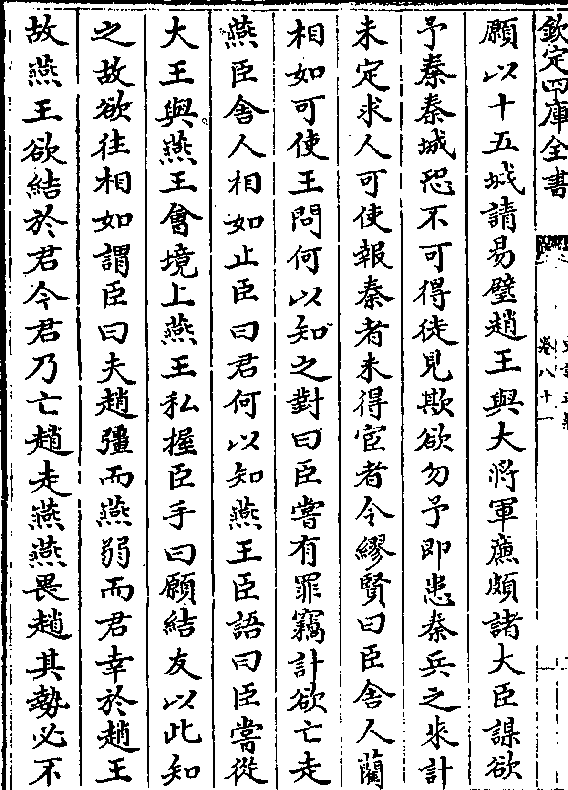 欽定四庫全書
卷八十一
願以十五城請易璧趙王與大將軍廉頗諸大臣謀欲
予秦秦城恐不可得徒見欺欲勿予即患秦兵之來計
未定求人可使報秦者未得宦者令繆賢曰臣舍人藺
相如可使王問何以知之對曰臣嘗有罪竊計欲亡走
燕臣舍人相如止臣曰君何以知燕王臣語曰臣嘗從
大王與燕王會境上燕王私握臣手曰願結友以此知
之故欲往相如謂臣曰夫趙彊而燕弱而君幸於趙王
故燕王欲結於君今君乃亡趙走燕燕畏趙其勢必不